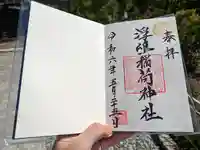 奉拝
浮嶋稲荷神社
令和六年五月二十五日